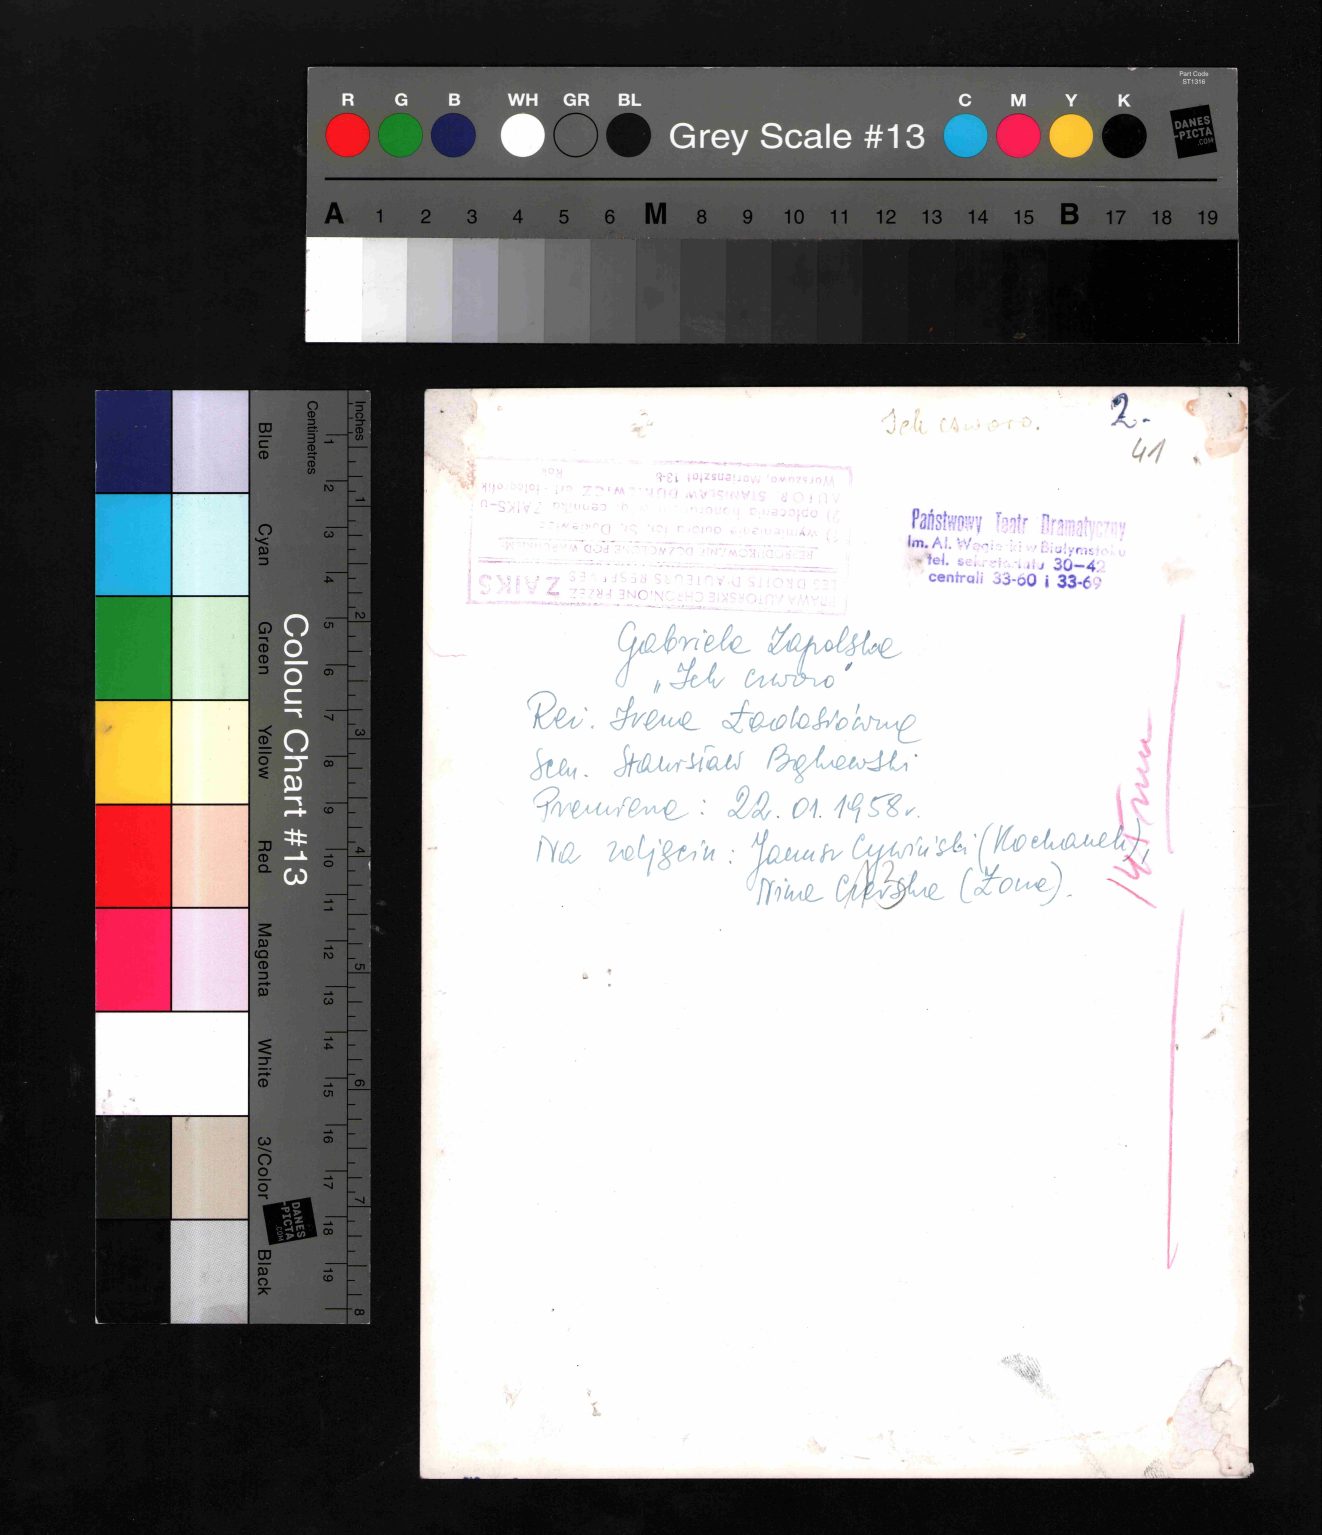 Part Code
ST1316
R G B WH GR BL Grey Scale #13 C M Y K
DANES
-PICTA
.COM
A 1 2 3 4 5 6 M 8 9 10 11 12 13 14 15 B 17 18 19
Colour Chart #13
Blue Cyan Green Yellow Red Magenta White 3/Color Black
Centimetres 1 2 3 4 5 6 7 8 9 10 11 12 13 14 15 16 17 18 19
Inches 1 2 3 4 5 6 7 8
DANES
-PICTA
.COM
Ich czworo.
2.
41
PRAWA AUTORSKIE CHRONIONE PRZEZ
LES DROITS D'AUTEURS RESERVES
ZAIKS
REPRODUKOWANIE DOZWOLONE POD WARUNKIEM
1) wymienienia autora fot. St. Dukiewicz
2) opłacenia honorarium wg. cennika ZAIKS-u
AUTOR STANISŁAW DUKIEWICZ art.-fotografik
Warszawa, Mariensztat 13-8
Rok
Państwowy Teatr Dramatyczny
Im. Al. Węgierki w Białymstoku
tel. sekretariatu 30-42
centrali 33-60 i 33-69
Gabriela Zapolska
„Ich czworo"
Reż. Irena Ładosiówna
Scen. Stanisław Bąkowski
Premiera: 22.01.1958r.
Na zdjęciu: Janusz Cywiński (Kochanek),
Nina Czerska (Żona).